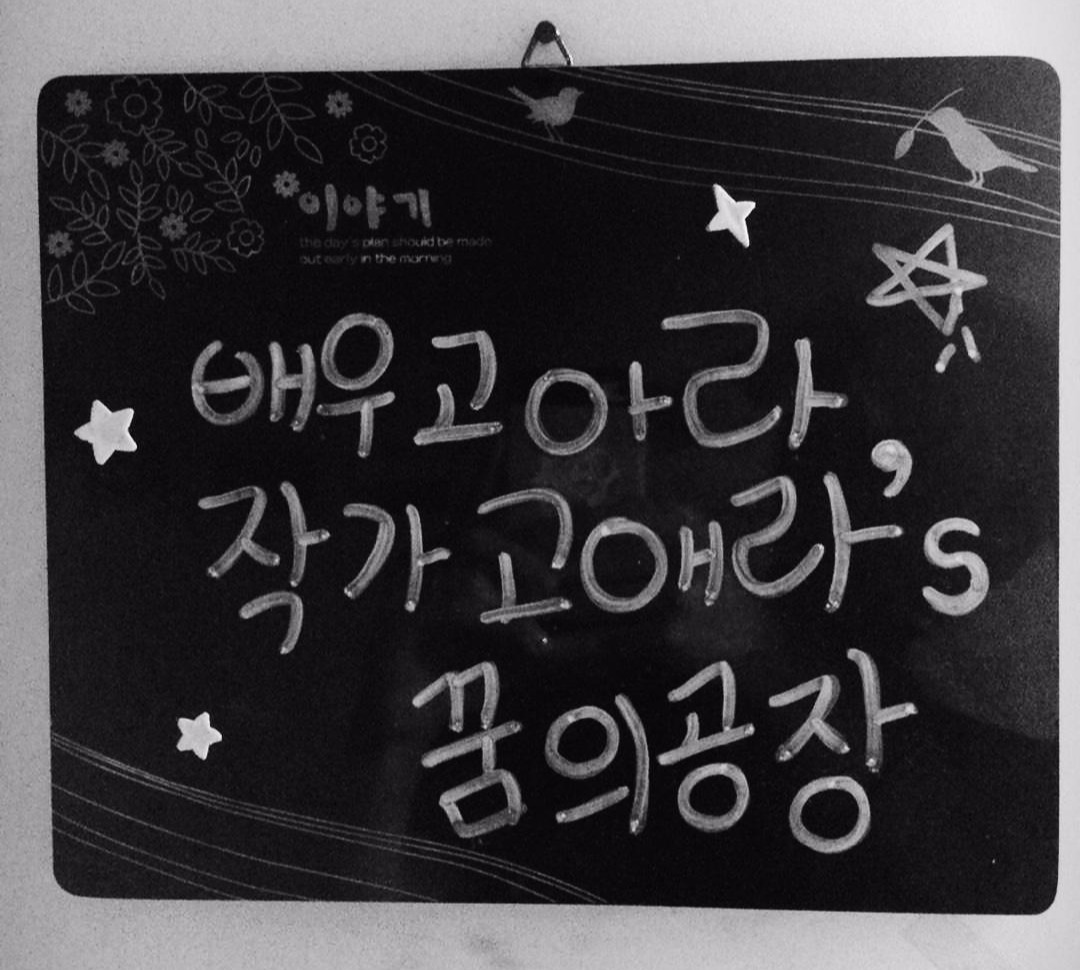 이야기
the day's plan should be made
out early in the morning
배우고아라
작가고애라's
꿈의공장